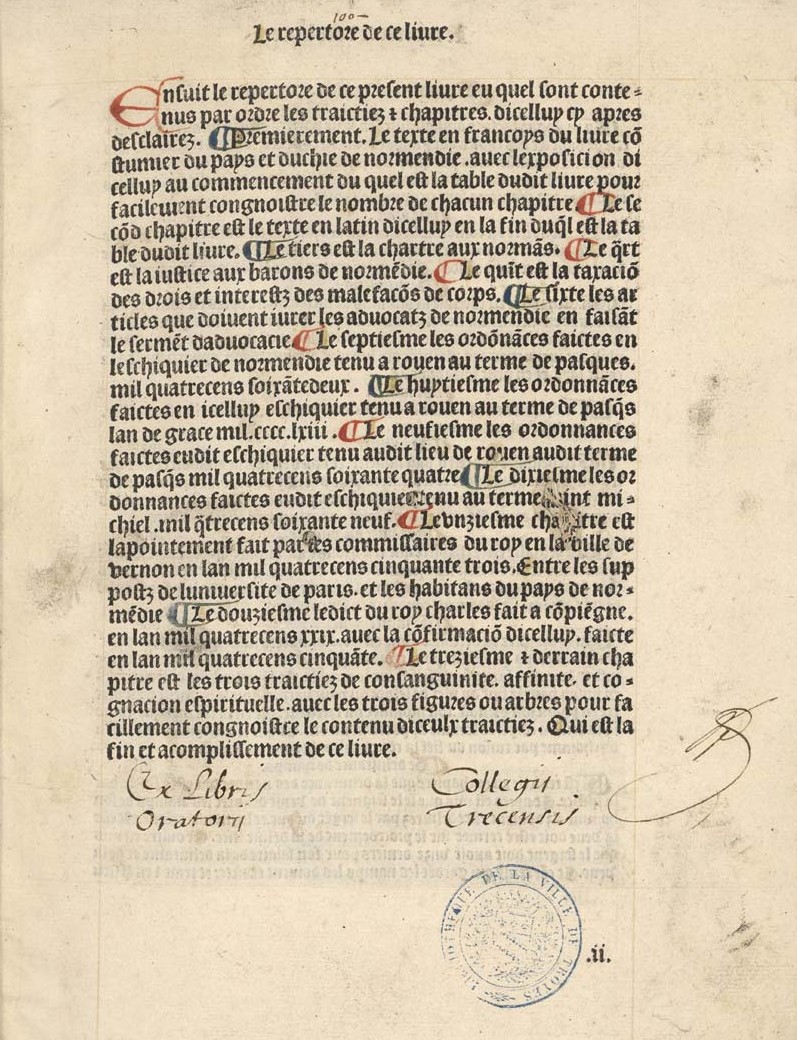 100—
Le repertore de ce liure.
Ensuit le repertore de ce present liure eu quel sont conte=
nus par ordre les traictiez ⁊ chapitres. dicelluy cy apres
desclairez. ¶Premierement. Le texte en francoys du liure cõ
stumier du pays et duchie de normendie .auec lexposicion di
celluy au commencement du quel est la table dudit liure pour
facilement congnoistre le nombre de chacun chapitre ¶Le se
cõd chapitre est le texte en latin dicelluy en la fin duq̃l est la ta
ble dudit liure. ¶Le tiers est la chartre aux normãs. ¶Le q̃rt
est la iustice aux barons de normẽdie. ¶Le quĩt est la taxaciõ
des drois et interestz des malefacõs de corps. ¶Le sixte les ar
ticles que doiuent iurer les aduocatz de normendie en faisãt
le sermẽt daduocacie ¶Le septiesme les ordõnãces faictes en
leschiquier de normendie tenu a rouen au terme de pasques.
mil quatrecens soixãtedeux . ¶Le huytiesme les ordonnãces
faictes en icelluy eschiquier tenu a rouen au terme de pasq̃s
lan de grace mil.cccc.lxiii . ¶Le neufiesme les ordonnances
faictes eudit eschiquier tenu audit lieu de rouen audit terme
de pasq̃s mil quatrecens soixante quatre ¶Le dixiesme les or
donnances faictes eudit eschiquier tenu au terme saint mi=
chiel .mil q̃trecens soixante neuf. ¶Le vnziesme chapitre est
lapointement fait par les commissaires du roy en la ville de
vernon en lan mil quatrecens cinquante trois. Entre les sup
postz de luniuersite de paris. et les habitans du pays de nor=
mẽdie ¶Le douziesme ledict du roy charles fait a cõpiẽgne.
en lan mil quatrecens xxix. auec la cõfirmaciõ dicelluy. faicte
en lan mil quatrecens cinquãte. ¶Le treziesme ⁊ derrain cha
pitre est les trois traictiez de consanguinite. affinite. et co=
gnacion espirituelle. auec les trois figures ou arbres pour fa
cillement congnoistre le contenu diceulx traictiez . Qui est la
fin et acomplissement de ce liure.
Ex Libris Collegii
Oratorij Trecensis
BIBLIOTHEQUE DE LA VILLE DE TROYES
.ii.